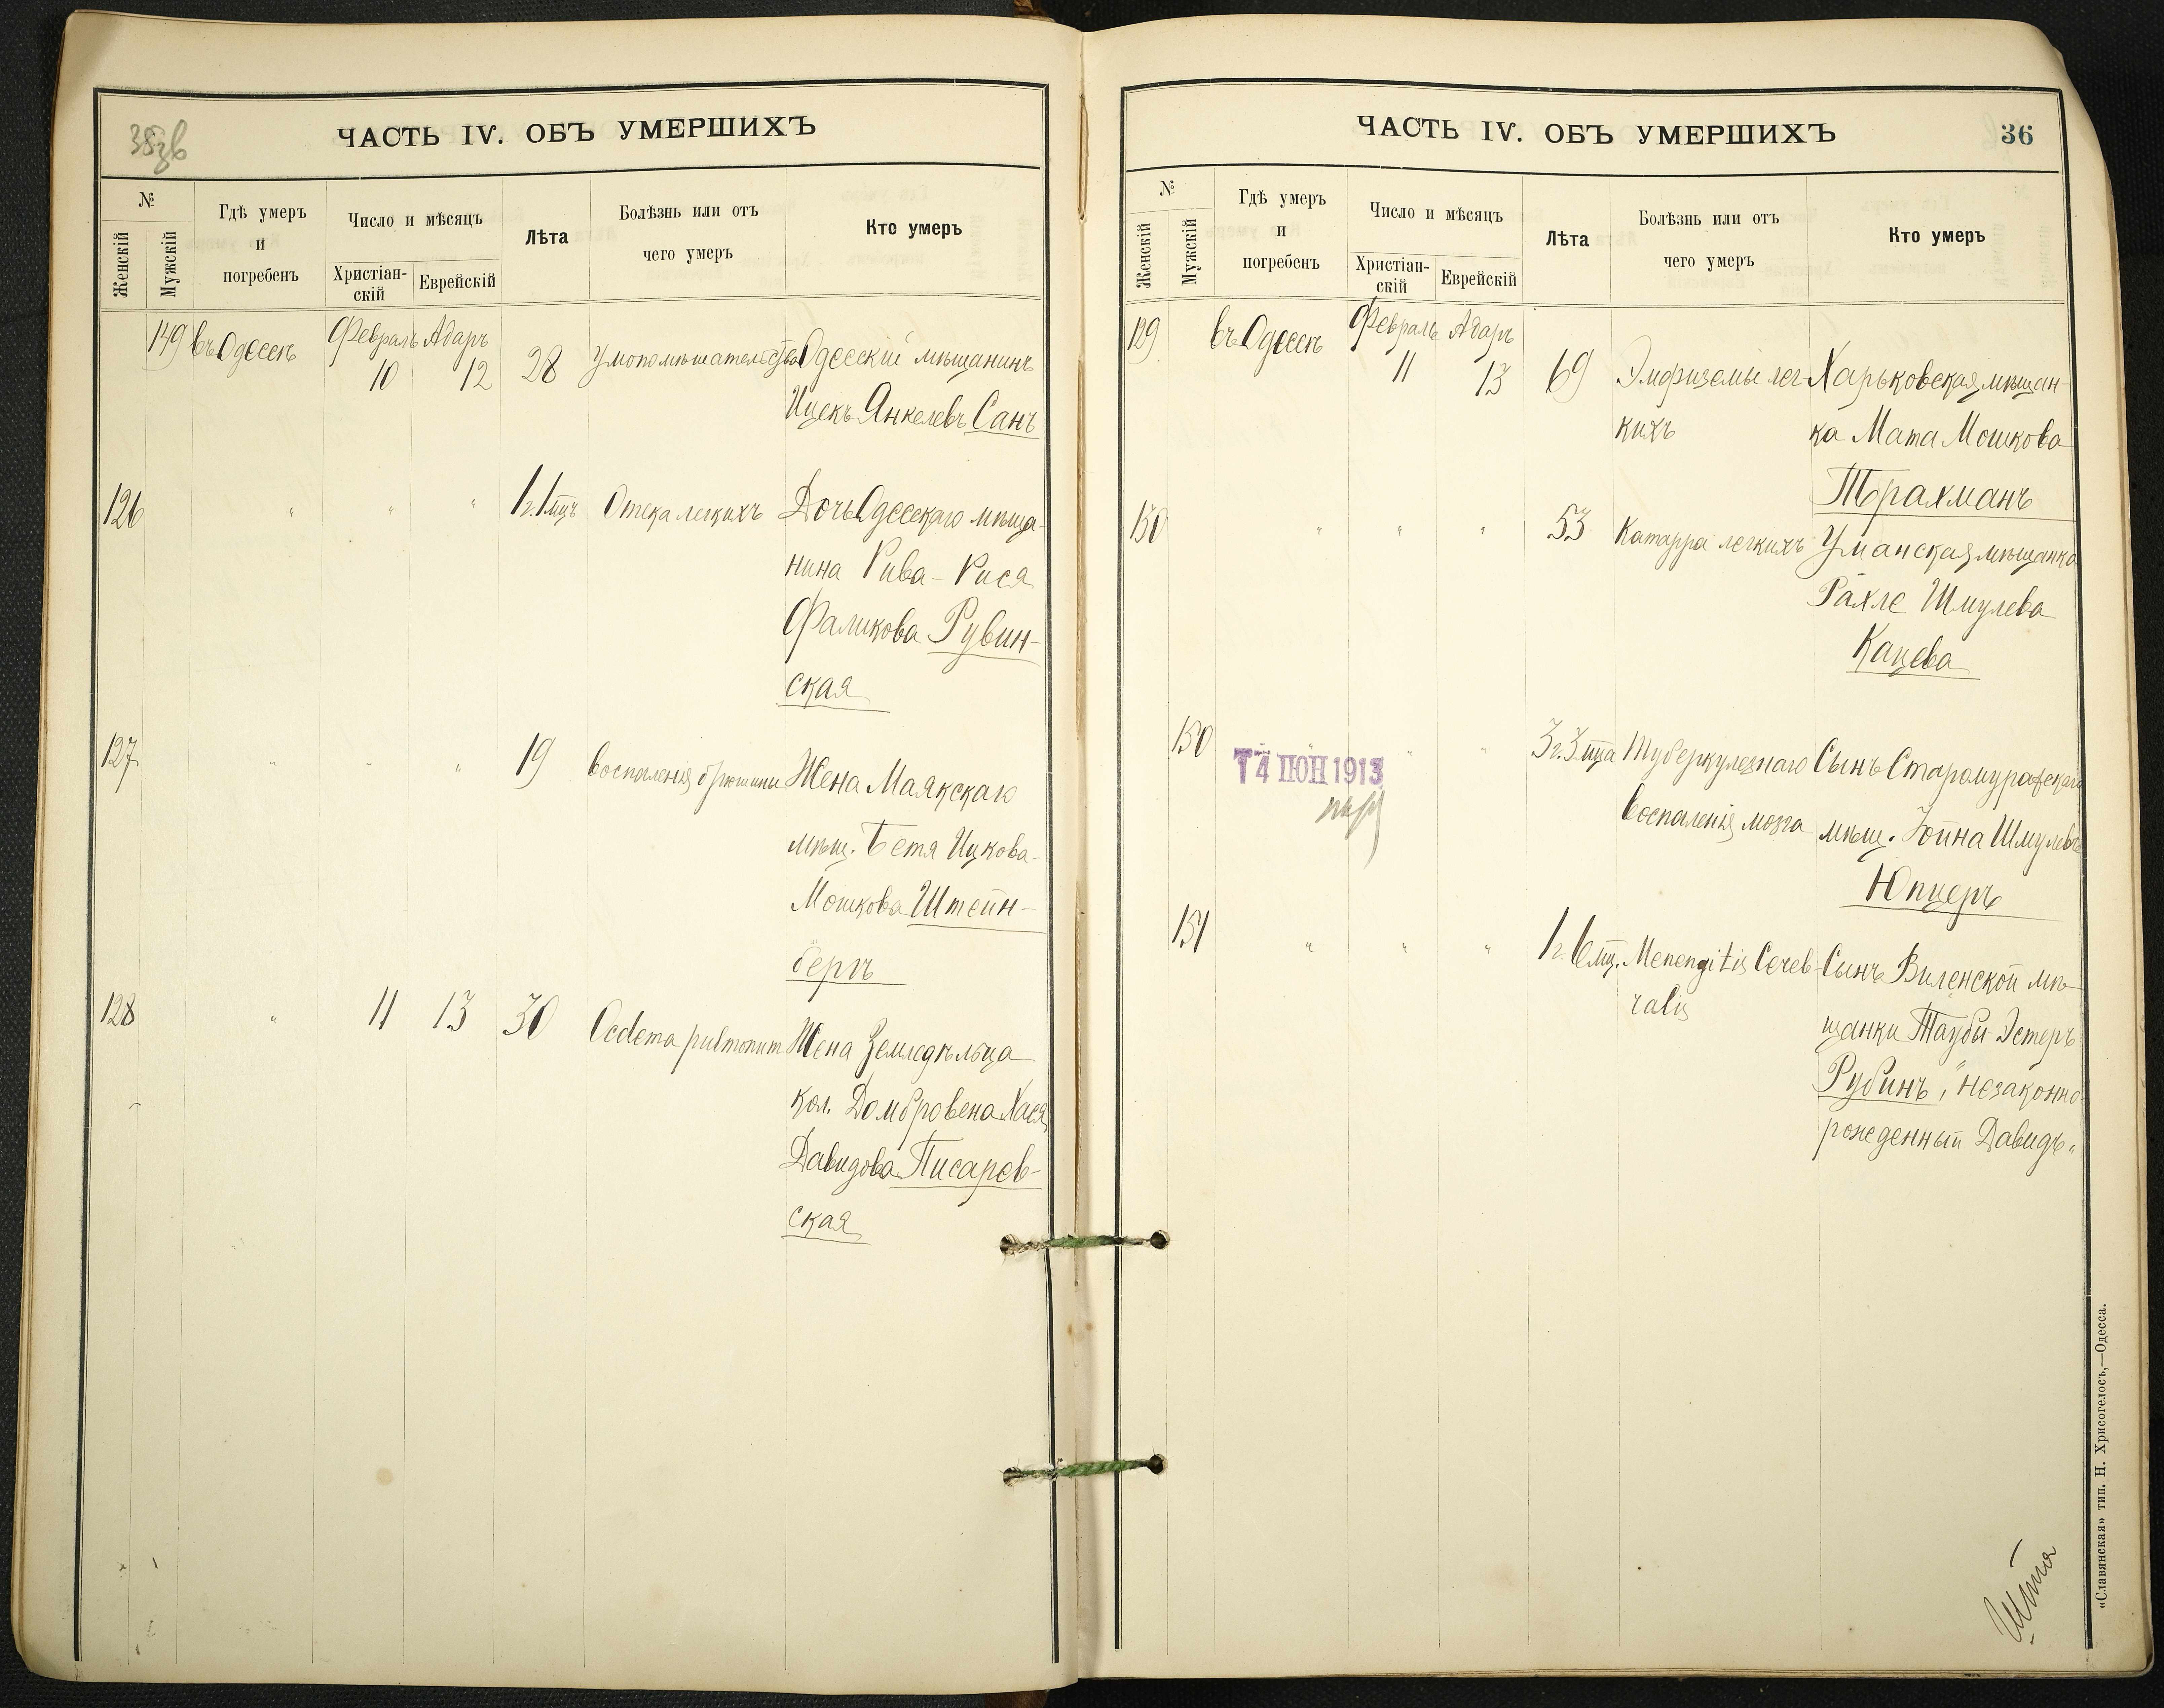 38зв
ЧАСТЬ IV. ОБЪ УМЕРШИХЪ
№
Женскій
Мужскій
Гдѣ умеръ
и
погребенъ
Число и мѣсяцъ
Христіан-
скій
Еврейскій
Лѣта
Болѣзнь или отъ
чего умеръ
Кто умеръ
149 въ Одессѣ Февраль Адаръ
10 12 28 Умопомѣшательства Одесскій мѣщанинъ
Ицекъ Янкелевъ Санъ
126 " " " 1 г. 1 мцъ Отека легкихъ Дочь Одесскаго мѣща-
нина Рива-Рися
Фаликова Рувин-
ская
127 " " " 19 воспаленія брюшины Жена Маякскаго
мѣщ. Бетя Ицкова-
Мошкова Штейн-
бергъ
128 " 11 13 30 Oedema pulmonum Жена Земледѣльца
кол. Домбровена Хася
Давидова Писарев-
ская
ЧАСТЬ IV. ОБЪ УМЕРШИХЪ
36
№
Женскій
Мужскій
Гдѣ умеръ
и
погребенъ
Число и мѣсяцъ
Христіан-
скій
Еврейскій
Лѣта
Болѣзнь или отъ
чего умеръ
Кто умеръ
129 въ Одессѣ Февраль Адаръ
11 13 69 Эмфиземы лег- Харьковская мѣщан-
кихъ ка Мата Мошкова
Трахманъ
130 " " " 53 Катарра легкихъ Уманская мѣщанка
Рахле Шмулева
Кацева
150 " " " 3 г. 3 мца Туберкулезнаго Сынъ
14 ІЮН 1913
воспаленія мозга мѣщ. Іойна Шмулевъ
Юпцеръ
151 " " " 1 г. 6 мц. Menengitis Cereb- Сынъ Виленской мѣ-
ralis
щанки Таубы-Эстеръ
Рубинъ, "незаконно-
рожденный Давидъ"
«Славянская» тип. Н. Хрисогелосъ,—Одесса.